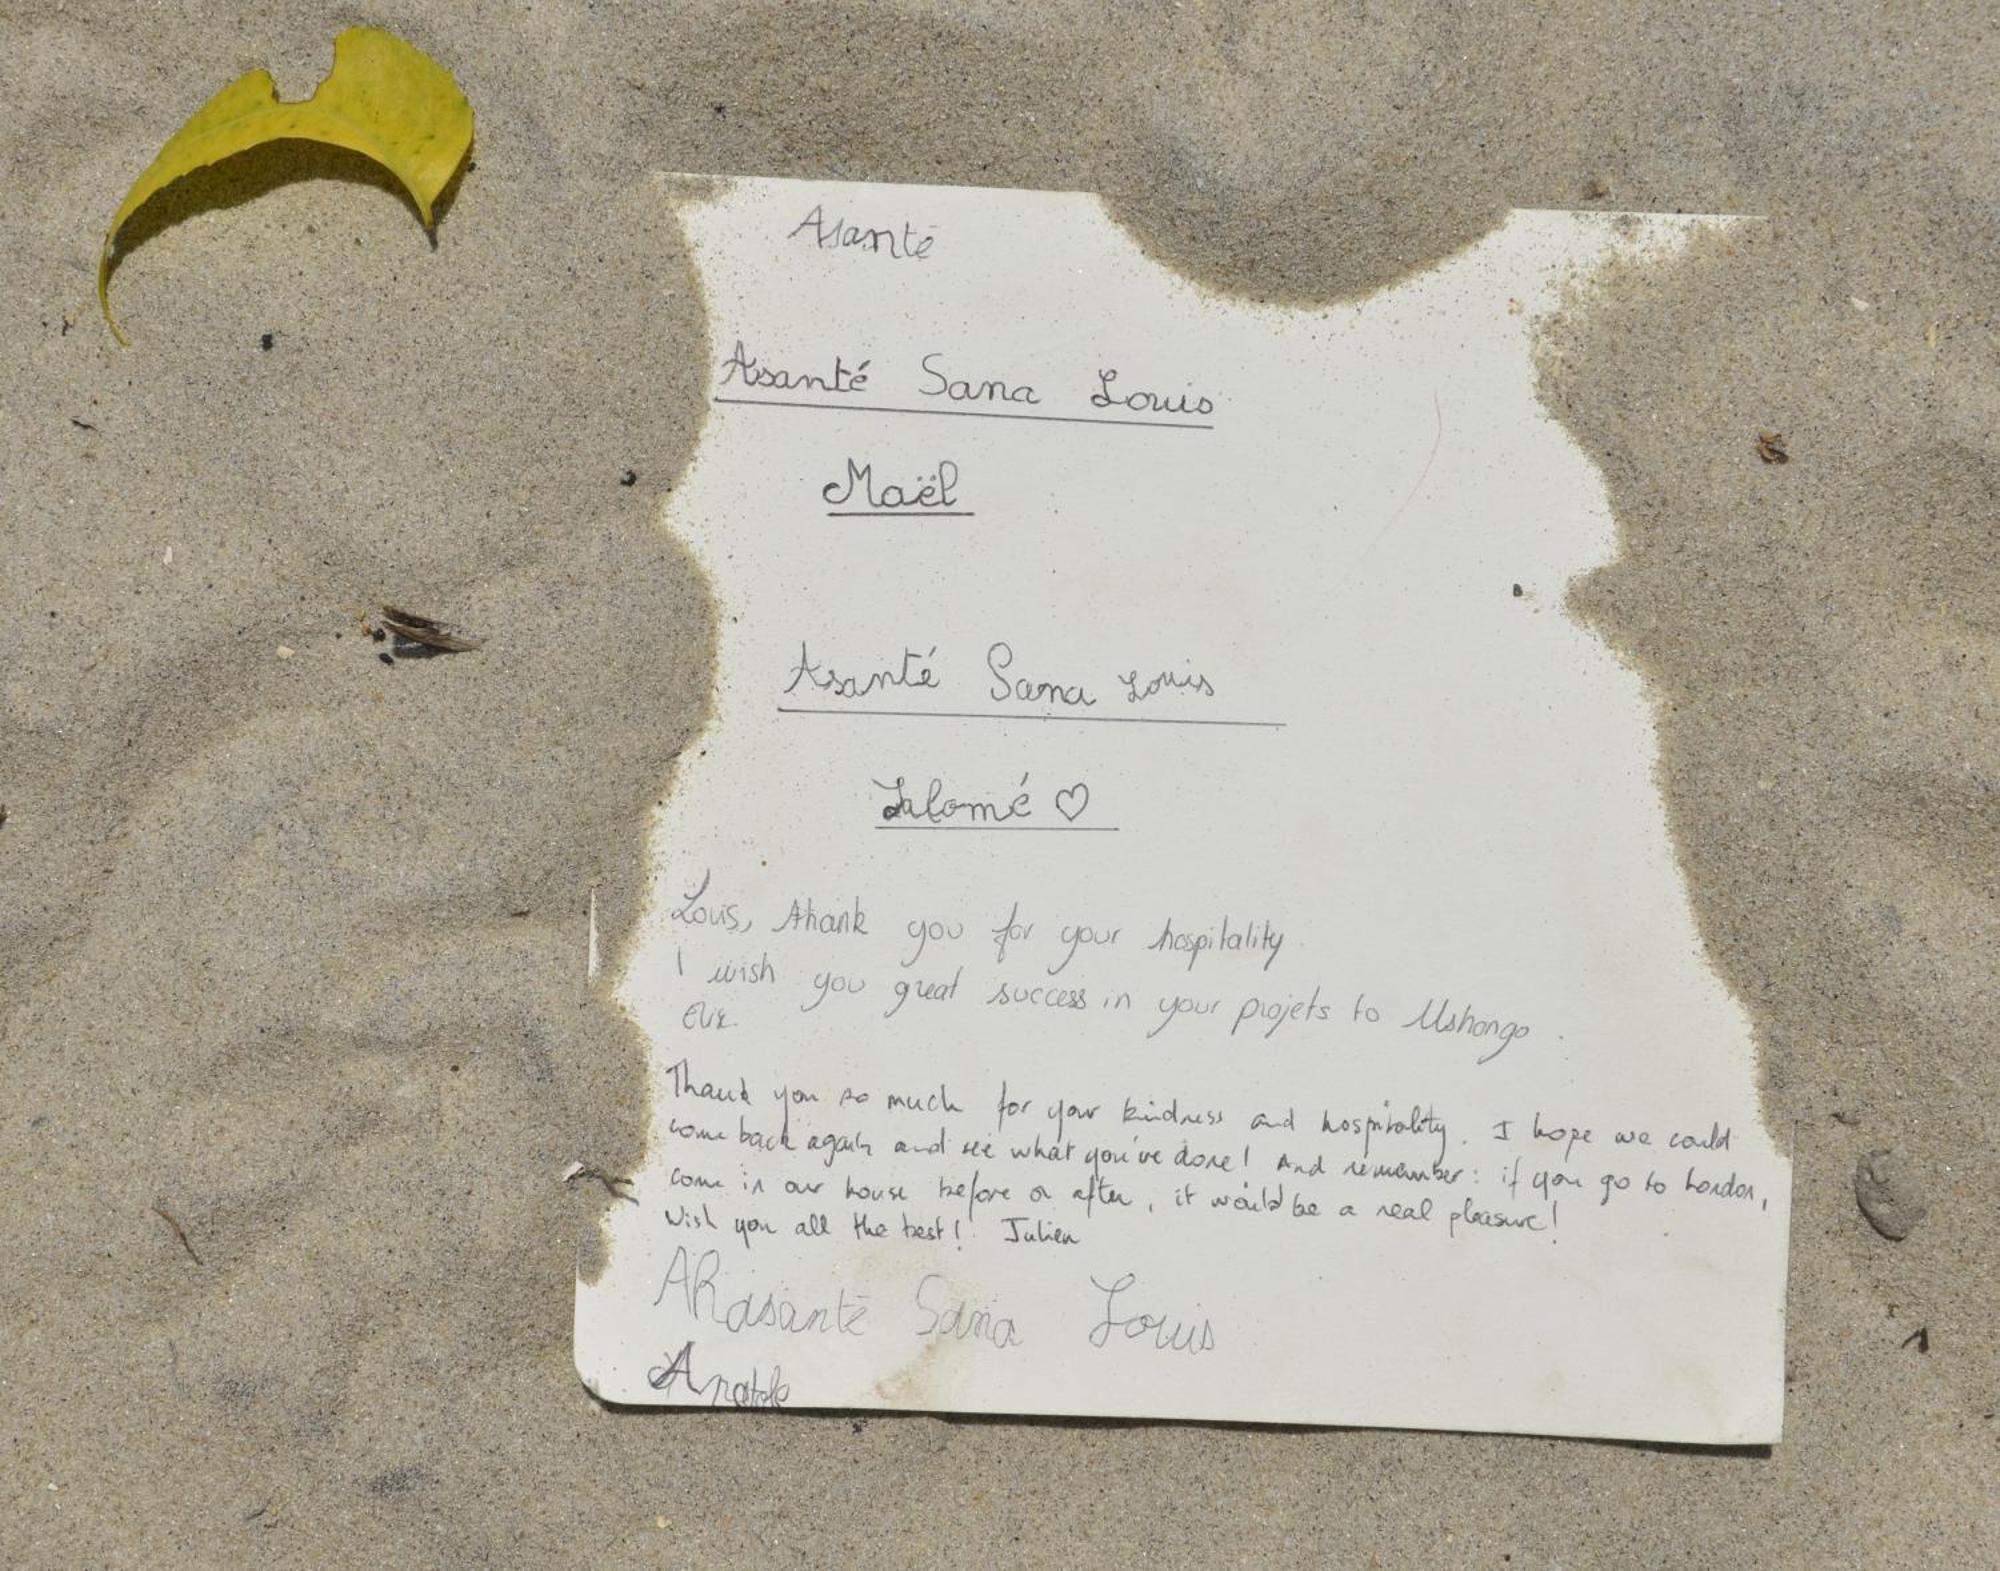 Asanté
Asanté Sana Louis
Maël
Asanté Sana Louis
Salomé ♡
Louis, thank you for your hospitality.
I wish you great success in your projets to Ushongo.
Thank you so much for your kindness and hospitality. I hope we could
come back again and see what you've done! And remember: if you go to London,
come in our house before or after, it would be a real pleasure!
Wish you all the best! Julien
Asanté Sana Louis
Anatole